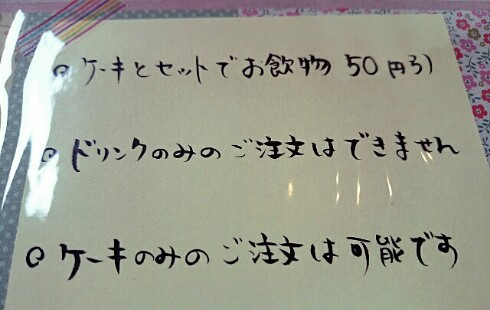 ○ ケーキとセットでお飲物 50円引
○ ドリンクのみのご注文はできません
○ ケーキのみのご注文は可能です